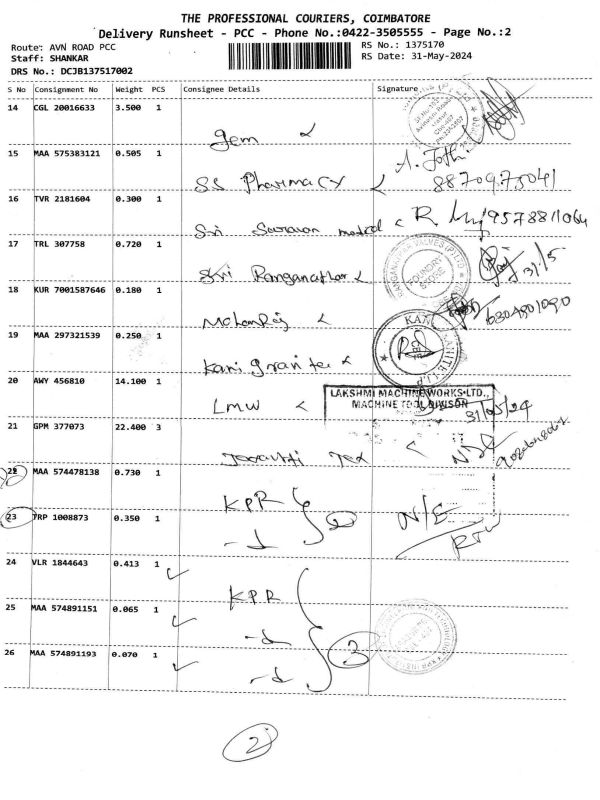 THE PROFESSIONAL COURIERS, COIMBATORE
Delivery Runsheet - PCC - Phone No.:0422-3505555 - Page No.:2
Route: AVN ROAD PCC
RS No.: 1375170
Staff: SHANKAR
RS Date: 31-May-2024
DRS No.: DCJB137517002
S No Consignment No Weight PCS Consignee Details Signature
14 CGL 20016633 3.500 1
Gem
15 MAA 575383121 0.505 1
SS Pharmacy 8870975041
16 TVR 2181604 0.300 1
Sri Saravan medical 9578811064
17 TRL 307758 0.720 1
Sri Ranganathar 31/5
18 KUR 7001587646 0.180 1
Mohanraj
19 MAA 297321539 0.250 1
Kani granite
20 AWY 456810 14.100 1
LMW
LAKSHMI MACHINE WORKS LTD.,
MACHINE TOOL DIVISON
31/05/24
21 GPM 377073 22.400 3
Tex
22 MAA 574478138 0.730 1
KPR
23 TRP 1008873 0.350 1
2 N/E
24 VLR 1844643 0.413 1
KPR
25 MAA 574891151 0.065 1
3
26 MAA 574891193 0.070 1
2